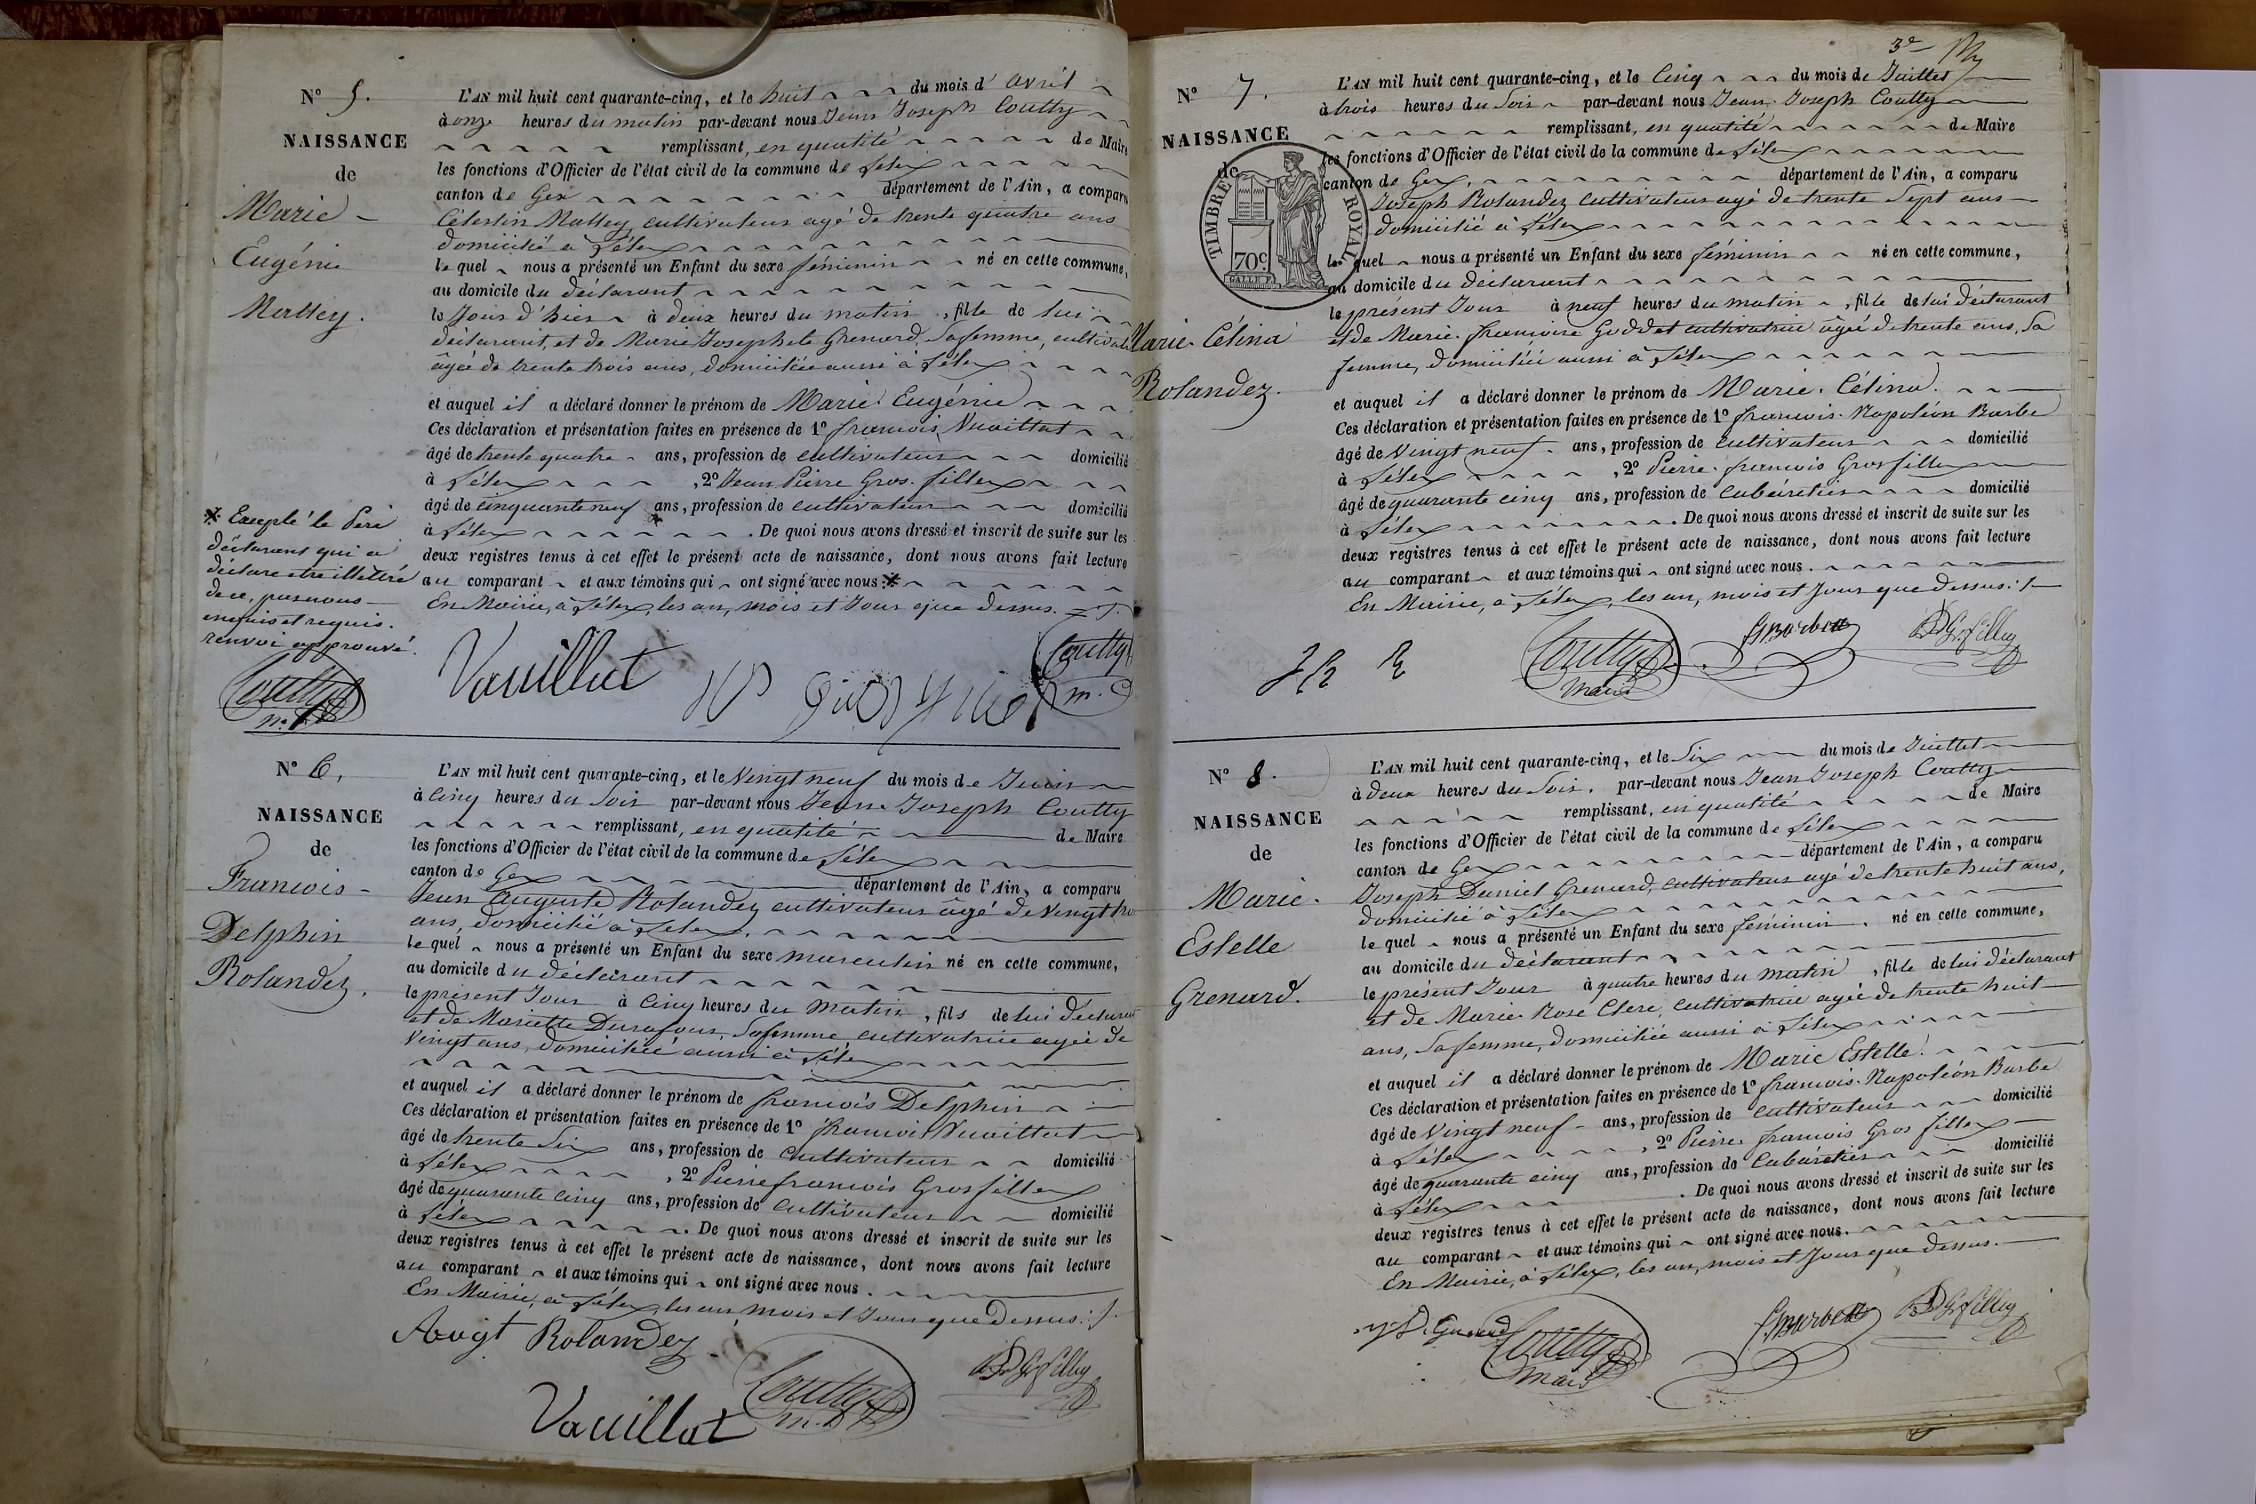 N° 5.
NAISSANCE
de
Marie
Eugénie
Mattey.
L'AN mil huit cent quarante-cinq, et le huit du mois d'avril
à onze heures du matin par-devant nous Jean Joseph Coutty
remplissant, en qualité de Maire
les fonctions d'Officier de l'état civil de la commune de Lélex
canton de Gex département de l'Ain, a comparu
Célestin Mattey, cultivateur agé de trente quatre ans
domicilié à Lélex
le quel nous a présenté un Enfant du sexe féminin né en cette commune,
au domicile du déclarant
le Jour d'hier à deux heures du matin, fille de lui
déclarant, et de Marie Josephete Grenard, Sa femme, cultivatrice
âgée de trente trois ans, domiciliée aussi à Lélex
et auquel il a déclaré donner le prénom de Marie Eugénie
Ces déclaration et présentation faites en présence de 1° françois Vuaillat
âgé de trente quatre ans, profession de cultivateur domicilié
à Lélex, 2° Jean Pierre Gros-fillex
âgé de cinquante neuf ans, profession de cultivateur domicilié
à Lélex. De quoi nous avons dressé et inscrit de suite sur les
deux registres tenus à cet effet le présent acte de naissance, dont nous avons fait lecture
au comparant et aux témoins qui ont signé avec nous *
En Mairie, à Lélex, les an, mois et Jour que dessus.
* Excepté le Père
déclarant qui a
déclaré etre illettré
de ce, par nous
enquis et requis.
renvoi approuvé.
Coutty
Vauillat
Coutty
N° 6.
NAISSANCE
de
Francois
Delphin
Rolandez.
L'AN mil huit cent quarante-cinq, et le Vingt neuf du mois de Juin
à Cinq heures du Soir par-devant nous Jean Joseph Coutty
remplissant, en qualité de Maire
les fonctions d'Officier de l'état civil de la commune de Lélex
canton de Gex département de l'Ain, a comparu
Jean Auguste Rolandez, cultivateur âgé de Vingt
ans, domicilié à Lélex.
le quel nous a présenté un Enfant du sexe masculin né en cette commune,
au domicile du déclarant
le présent Jour à Cinq heures du matin, fils de lui déclarant
et de Mariette Durafour, Sa femme cultivatrice agée de
Vingt ans, domiciliée aussi à Lélex
et auquel il a déclaré donner le prénom de françois Delphin
Ces déclaration et présentation faites en présence de 1° françois Vuaillat
âgé de trente Six ans, profession de Cultivateur domicilié
à Lélex, 2° Pierre françois Grosfillex
âgé de quarante cinq ans, profession de Cultivateur domicilié
à Lélex. De quoi nous avons dressé et inscrit de suite sur les
deux registres tenus à cet effet le présent acte de naissance, dont nous avons fait lecture
au comparant et aux témoins qui ont signé avec nous.
En Mairie, à Lélex, les an, mois et Jour que Dessus.
Augt Rolandez
Coutty
Vauillat
3e
N° 7.
NAISSANCE
de
TIMBRE ROYAL
70c
Marie Célina
Rolandez.
L'AN mil huit cent quarante-cinq, et le Cinq du mois de Juillet
à trois heures du Soir par-devant nous Jean Joseph Coutty
remplissant, en qualité de Maire
les fonctions d'Officier de l'état civil de la commune de Lélex
canton de Gex, département de l'Ain, a comparu
Joseph Rolandez cultivateur agé de trente Sept ans
domicilié à Lélex
le quel nous a présenté un Enfant du sexe féminin né en cette commune,
au domicile du déclarant
le présent Jour à neuf heures du matin, fille de lui déclarant
et de Marie françoise Goddet cultivatrice âgée de trente ans, Sa
femme, domiciliée aussi à Lélex
et auquel il a déclaré donner le prénom de Marie Célina.
Ces déclaration et présentation faites en présence de 1° francois Napoléon Barbe
âgé de Vingt neuf ans, profession de Cultivateur domicilié
à Lélex, 2° Pierre françois Grosfillex
âgé de quarante cinq ans, profession de Cabaretier domicilié
à Lélex. De quoi nous avons dressé et inscrit de suite sur les
deux registres tenus à cet effet le présent acte de naissance, dont nous avons fait lecture
au comparant et aux témoins qui ont signé avec nous.
En Mairie, à Lélex, les an, mois et Jour que dessus.
Coutty
maire
N° 8.
NAISSANCE
de
Marie
Estelle
Grenard.
L'AN mil huit cent quarante-cinq, et le Six du mois de Juillet
à deux heures du Soir, par-devant nous Jean Joseph Coutty
remplissant, en qualité de Maire
les fonctions d'Officier de l'état civil de la commune de Lélex
canton de Gex département de l'Ain, a comparu
Joseph Daniel Grenard, cultivateur agé de trente huit ans,
domicilié à Lélex
le quel nous a présenté un Enfant du sexe féminin, né en cette commune,
au domicile du déclarant
le présent Jour à quatre heures du matin, fille de lui déclarant
et de Marie Rose Clerc, cultivatrice agée de trente huit
ans, Sa femme, domiciliée aussi à Lélex
et auquel il a déclaré donner le prénom de Marie Estelle.
Ces déclaration et présentation faites en présence de 1° francois Napoléon Barbe
âgé de Vingt neuf ans, profession de Cultivateur domicilié
à Lélex, 2° Pierre francois Gros fillex
âgé de quarante cinq ans, profession de Cabaretier domicilié
à Lélex. De quoi nous avons dressé et inscrit de suite sur les
deux registres tenus à cet effet le présent acte de naissance, dont nous avons fait lecture
au comparant et aux témoins qui ont signé avec nous.
En Mairie, à Lélex, les an, mois et Jour que dessus.
Coutty
maire